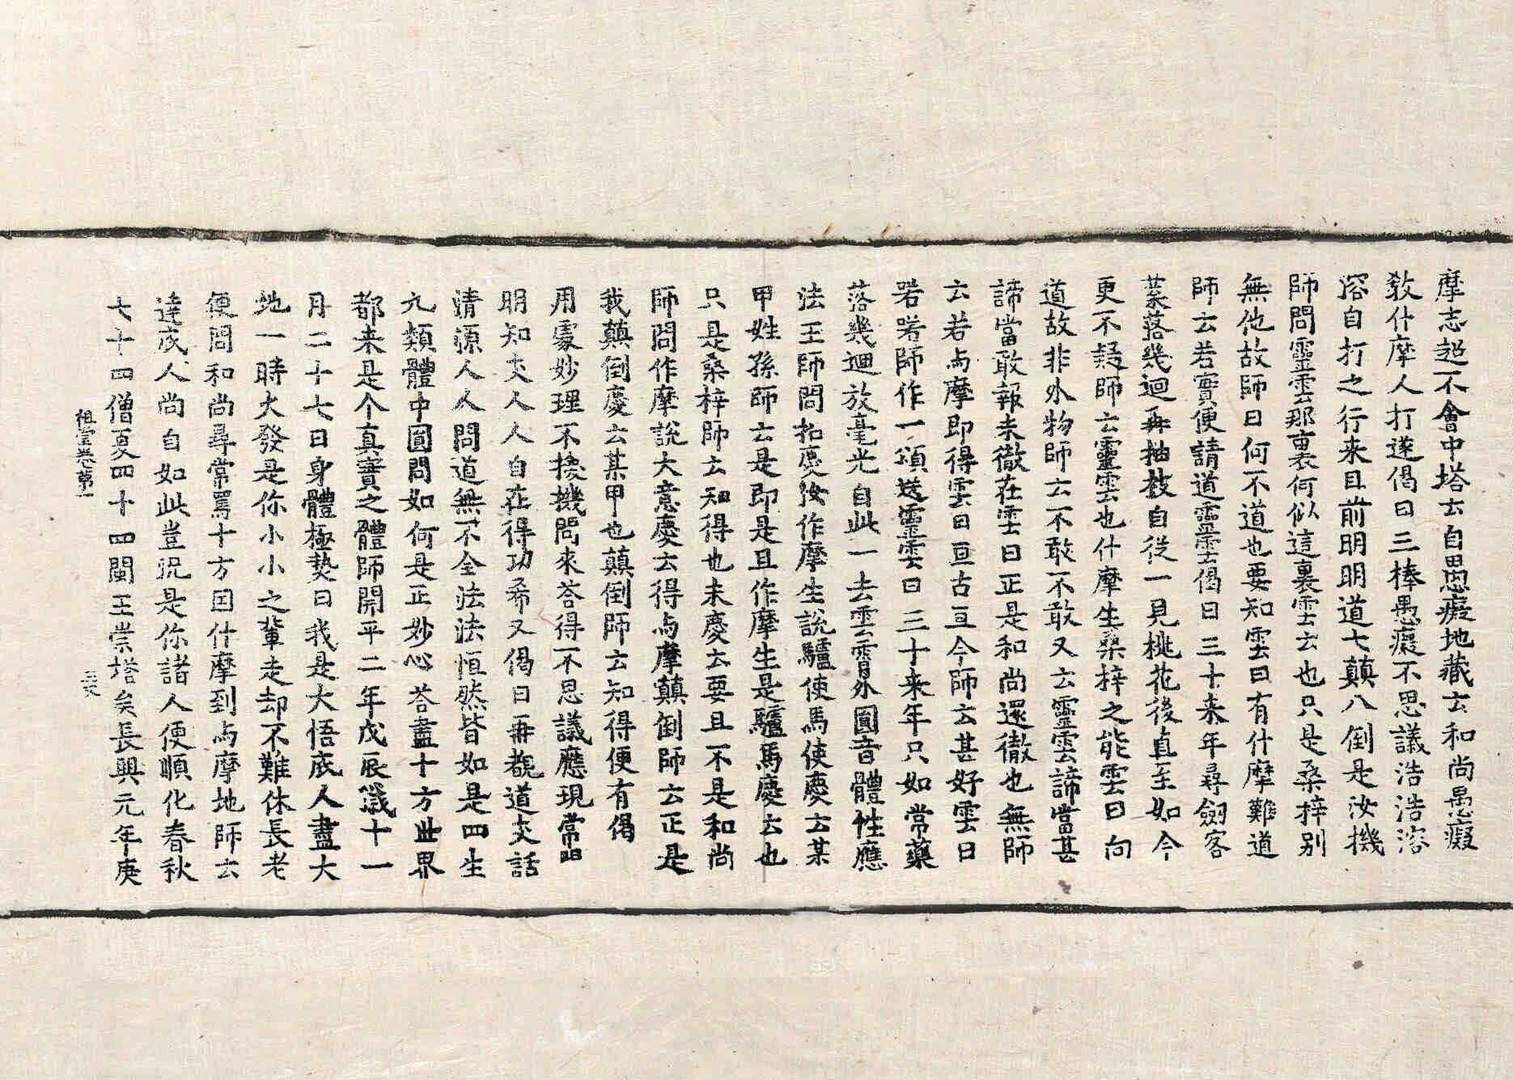 摩志超不會中塔云自愚癡地藏云和尚愚癡
教什摩人打遂偈曰三棒愚癡不思議浩浩溶
溶自打之行来目前明明道七顛八倒是汝機
師問靈雲那裏何似這裏雲云也只是桑梓別
無他故師曰何不道也要知雲曰有什摩難道
師云若實便請道靈雲偈曰三十来年尋劒客
葉落幾迴再抽枝自從一見桃花後直至如今
更不疑師云靈雲也什摩生桑梓之能雲曰向
道故非外物師云不敢不敢又云靈雲諦當甚
諦當敢報未徹在雲曰正是和尚還徹也無師
云若与摩即得雲曰亘古亘今師云甚好雲曰
喏喏師作一頌送靈雲曰三十来年只如常葉
落幾迴放毫光自此一去雲霄外圓音體性應
法王師問招慶汝作摩生說驢使馬使慶云某
甲姓孫師云是即是且作摩生是驢馬慶云也
只是桑梓師云知得也未慶云要且不是和尚
師問作摩說大意慶云得与摩顛倒師云正是
我顛倒慶云某甲也顛倒師云知得便有偈
用處妙理不換機問来答得不思議應現常明
明知交人人自在得功希又偈曰再覩道交話
清源人人問道無不全法法恒然皆如是四生
九類體中圓問如何是正妙心答盡十方世界
都来是个真實之體師開平二年戊辰歲十一
月二十七日身體極熱曰我是大悟底人盡大
地一時火發是你小小之輩走却不難休長老
便問和尚尋常罵十方因什摩到与摩地師云
達底人尚自如此豈況是你諸人便順化春秋
七十四僧夏四十四閩王崇塔矣長興元年庚
祖堂卷第十